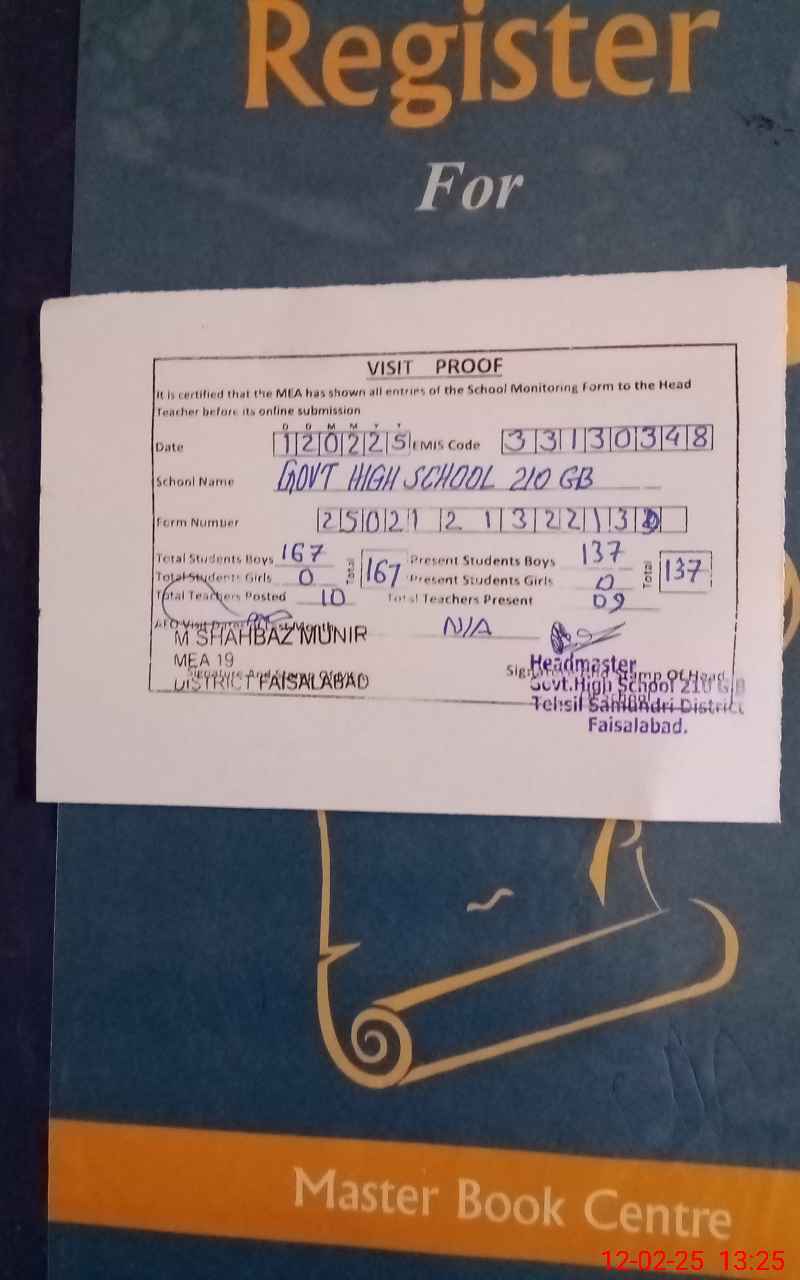 Register
For
VISIT PROOF
It is certified that the MEA has shown all entries of the School Monitoring Form to the Head
Teacher before its online submission
D D M M Y Y
Date 120225 EMIS Code 33130348
School Name GOVT HIGH SCHOOL 210 GB
Form Number 25021 2 132213
Total Students Boys 167 Total 167 Present Students Boys 137 Total 137
Total Students Girls 0 Present Students Girls 0
Total Teachers Posted 10 Total Teachers Present 09
AEO Visit Date Of Last Month N/A
M SHAHBAZ MUNIR
MEA 19
DISTRICT FAISALABAD
Signature And Stamp Of Head
Headmaster
Govt.High School 210 G.B
Tehsil Samundri District
Faisalabad.
Master Book Centre
12-02-25 13:25